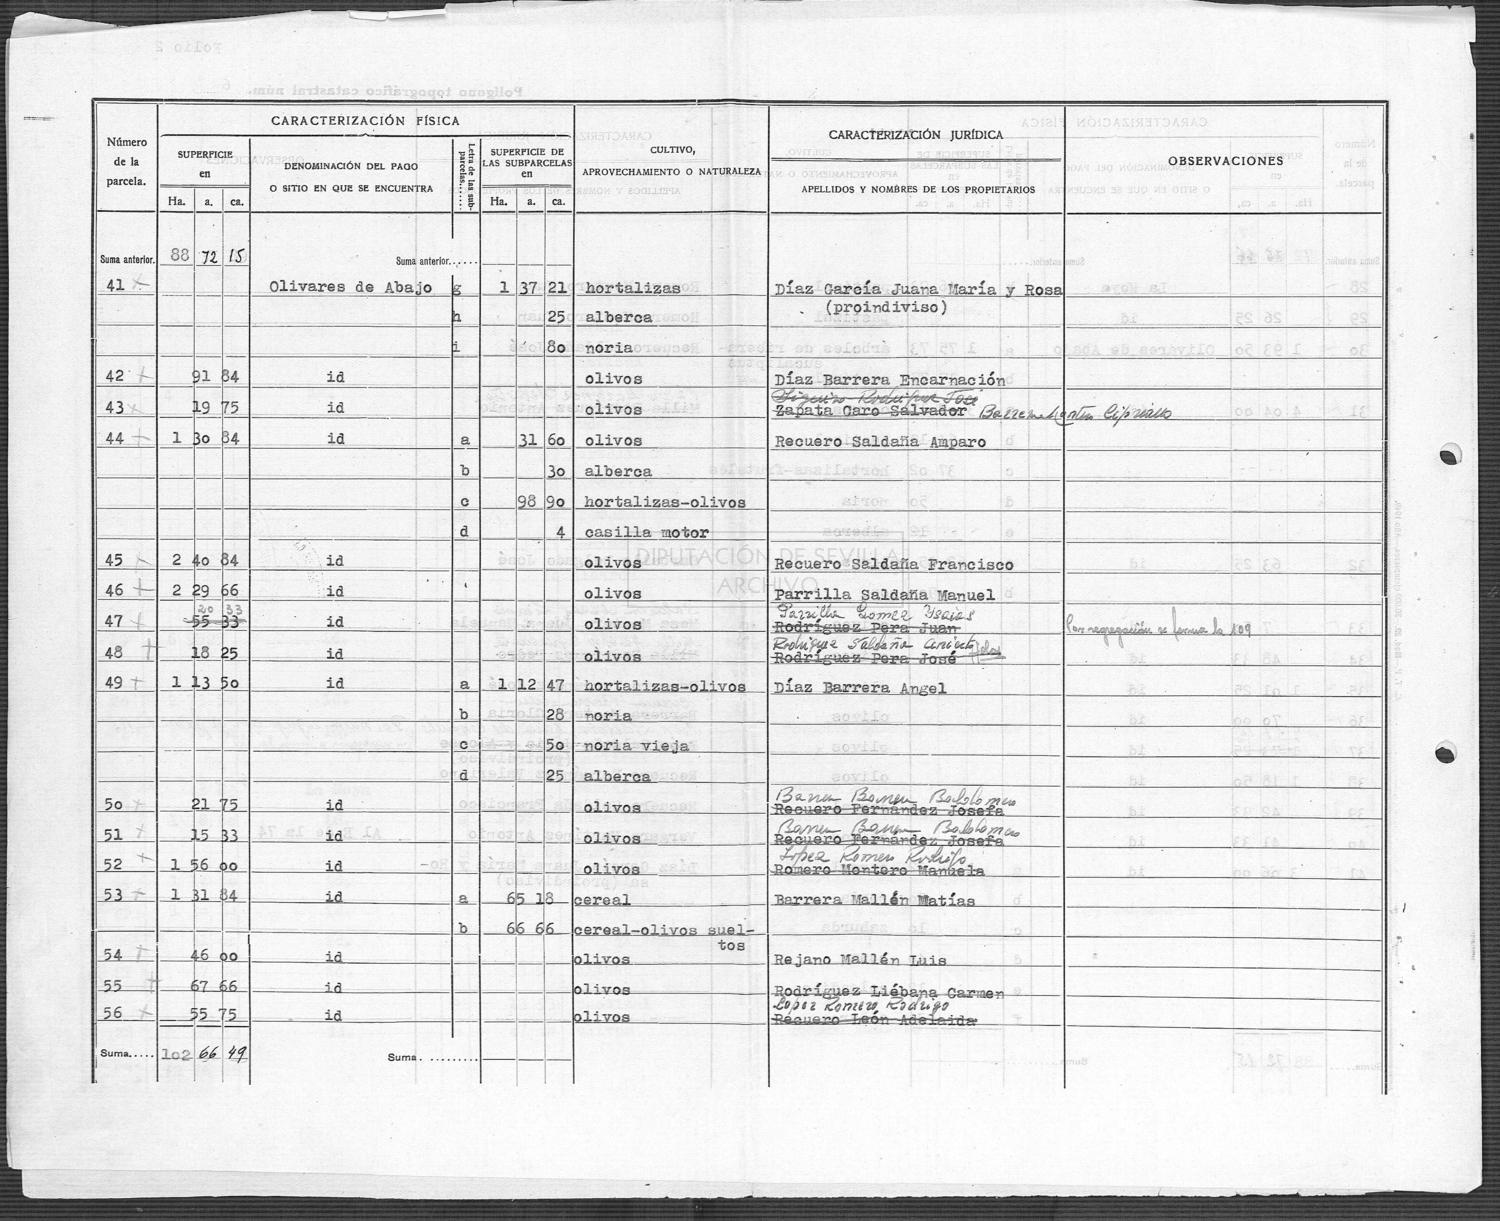 CARACTERIZACIÓN FÍSICA
CARACTERIZACIÓN JURÍDICA
OBSERVACIONES
Número de la parcela.
SUPERFICIE en
DENOMINACIÓN DEL PAGO O SITIO EN QUE SE ENCUENTRA
Letra de las subparcelas......
SUPERFICIE DE LAS SUBPARCELAS en
CULTIVO, APROVECHAMIENTO O NATURALEZA
APELLIDOS Y NOMBRES DE LOS PROPIETARIOS
Ha. a. ca. Ha. a. ca.
Suma anterior. 88 72 15 Suma anterior........
41 Olivares de Abajo g 1 37 21 hortalizas Díaz García Juana María y Rosa
(proindiviso)
h 25 alberca
i 80 noria
42 91 84 id olivos Díaz Barrera Encarnación
43 19 75 id olivos Zapata Caro Salvador
44 1 30 84 id a 31 60 olivos Recuero Saldaña Amparo
b 30 alberca
c 98 90 hortalizas-olivos
d 4 casilla motor
DIPUTACIÓN DE SEVILLA
ARCHIVO
45 2 40 84 id olivos Recuero Saldaña Francisco
46 2 29 66 id olivos Parrilla Saldaña Manuel
20 33 Parrilla Gomez Isaias
47 55 33 id olivos Rodríguez Pera Juan Por segregación se forma la 109
Rodriguez Saldaña Aniceto
48 18 25 id olivos Rodríguez Pera José
49 1 13 50 id a 1 12 47 hortalizas-olivos Díaz Barrera Angel
b 28 noria
c 50 noria vieja
d 25 alberca
Barrera Barrera Bartolomeo
50 21 75 id olivos Recuero Fernández Josefa
Barrera Barrera Bartolomeo
51 15 33 id olivos Recuero Fernández Josefa
Lopez Romero Rodrigo
52 1 56 00 id olivos Romero Montero Manuela
53 1 31 84 id a 65 18 cereal Barrera Mallén Matías
b 66 66 cereal-olivos suel-
tos
54 46 00 id olivos Rejano Mallén Luis
55 67 66 id olivos Rodríguez Liébana Carmen
Lopez Romero Rodrigo
56 55 75 id olivos Recuero León Adelaida
Suma..... 102 66 49 Suma. .........